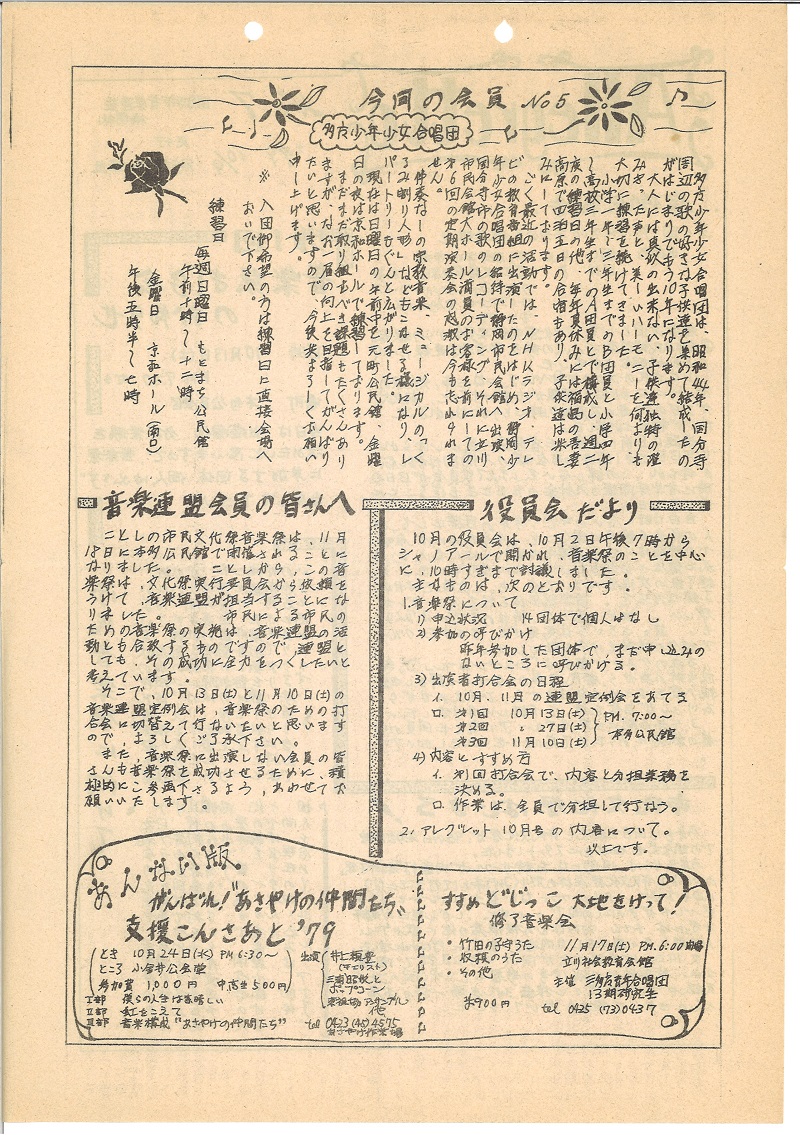 今月の会員 No5
多摩少年少女合唱団
多摩少年少女合唱団は、昭和44年、国分寺
周辺の歌の好きな子供達を集めて結成したの
がはじまりでもう10年になります。
大人には真似の出来ない、子供達独特の澄
みきった声と、美しいハーモニーを何よりも
大切に練習を続けてきました。
小学一年〜三年生までのB団員と小学四年
〜高校三年生までのA団員とで構成し、週二
度の練習日の他、毎年夏休みには
高原で四泊五日の合宿もあり、子供達は楽し
みにしております。
ごく最近の活動では、NHKラジオ、テレ
ビの教育番組に出演したのをはじめ、静岡少
年少女合唱団の招待で静岡市民会館へ出演、
国分寺市の歌のレコーディング、それに立川
市民会館大ホール満員のお客様を前にしての
第6回の定期演奏会の感激は今も忘れられま
せん。
伴奏なしの宗教音楽、ミュージカルの「く
るみ割り人形」などもこなせる様になり、レ
パートリーもぐんと広がりました。
現在は日曜日の午前中を元町公民館、金曜
日の夜は京和ホールで練習しております。
まだまだ取り組むべき課題もたくさんあり
ますが、なお一層の向上を目指してがんばり
たいと思いますので、今後共よろしくお願い
申し上げます。
※ 入団御希望の方は練習日に直接会場へ
おいで下さい。
練習日
毎週日曜日 もとまち公民館
午前十時〜十二時
金曜日 京和ホール(南口)
午後五時半〜七時
音楽連盟会員の皆さんへ
ことしの市民文化祭音楽祭は、11月
18日に本多公民館で開催されることに
なりました。 ことしから、この音
楽祭は、文化祭実行委員会から依頼を
うけて、音楽連盟が担当することにな
りました。 市民による市民の
ための音楽祭の実現は、音楽連盟の活
動とも合致するものですので、連盟と
しても、その成功に全力をつくしたいと
考えています。
そこで、10月13日(土)と11月10日(土)の
音楽連盟定例会は、音楽祭のための打
合会に切替えて行ないたいと思います
ので、よろしくご了承下さい。
また、音楽祭に出演しない会員の皆
さんも音楽祭を成功させるために、積
極的にご参画下さるよう、あわせてお
願いいたします。
役員会だより
10月の役員会は、10月2日午後7時から
シャノアールで開かれ、音楽祭のことを中心
に、10時すぎまで討議しました。
主なものは、次のとおりです。
1. 音楽祭について
1) 申込状況 14団体で個人はなし
2) 参加の呼びかけ
昨年参加した団体で、まだ申し込みの
ないところに呼びかける。
3) 出演者打合会の日程
イ. 10月、11月の連盟定例会をあてる
ロ. 第1回 10月13日(土)
第2回 〃 27日(土)
第3回 11月10日(土)
PM. 7:00〜
本多公民館
4) 内容とすすめ方
イ. 第1回打合会で、内容と分担業務を
決める。
ロ. 作業は、全員で分担して行なう。
2. アレグレット 10月号の内容について。
以上です。
あんない版。
がんばれ!“あさやけの仲間たち”
支援こんさあと '79
とき 10月24日(水) PM 6:30〜
ところ 小金井公会堂
参加費 1,000円 中高生500円
I部 僕らの人生は素晴しい
II部 虹をこえて
III部 音楽構成“あさやけの仲間たち”
出演
井上頼豊
(チェリスト)
三浦昭悦と
ポップコーン
他
tel 0423 (45) 4575
あさやけ作業場
すすめ どじっこ 大地をけって!
修了音楽会
・竹田の子守うた
・収穫のうた
・その他
¥900円
11月17日(土) PM. 6:00開場
立川社会教育会館
主催 三多摩青年合唱団
13期研究生
tel 0425 (73) 0437